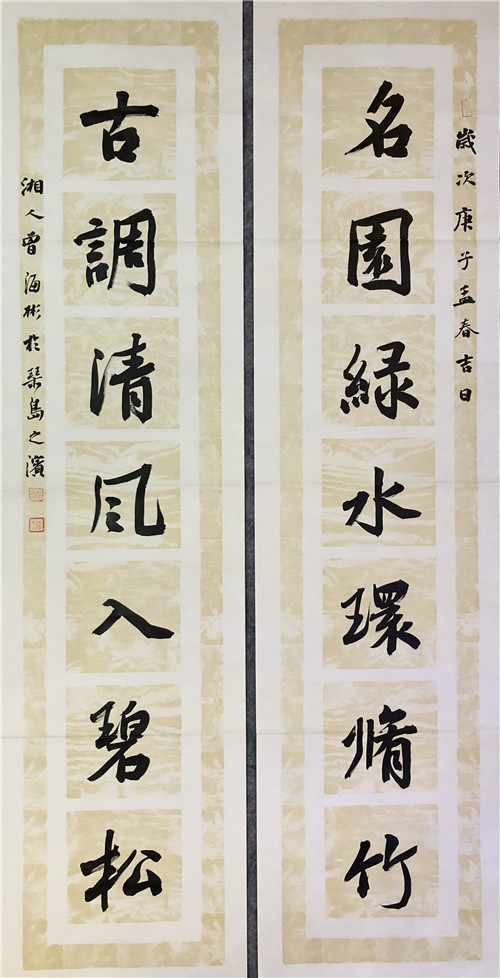 歲次庚子孟春吉日
名園緑水環脩竹
古調清風入碧松
湘人曾海彬於琴島之濱